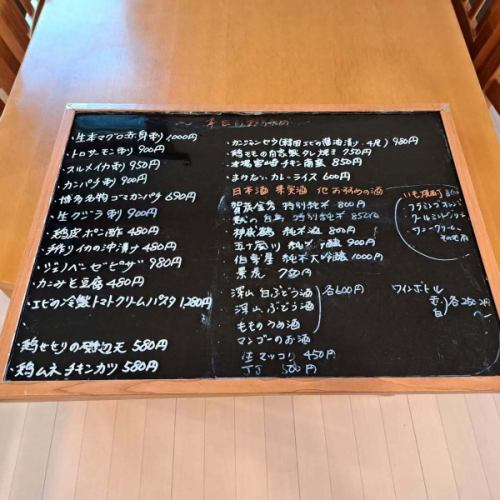 ・生本マグロ赤身刺 1000円
・トロサーモン刺 900円
・スルメイカ刺 950円
・カンパチ刺 900円
・博多名物ゴマカンパチ 690円
・生クジラ刺 900円
・鶏皮ポン酢 480円
・手作りイカの沖漬け 480円
・ジェノベーゼピザ 980円
・カニみそ豆腐 480円
・エビの冷製トマトクリームパスタ 1,280円
・鶏せせりの磯辺天 580円
・鶏ムネチキンカツ 580円
・カンジャンセウ(韓国エビの醤油漬け 4尾) 980円
・鶏モモの自家製タレ焼き 750円
チキン南蛮 850円
・まかないカレーライス 600円
日本酒 果実酒 他おすすめの酒
賀茂金秀 特別純米 800円
特別純米 850円
神蔵 純米 800円
五十嵐川 純米吟醸 900円
伯楽星 純米大吟醸 1000円
景虎 700円
深山 白ぶどう酒 各600円
深山 ぶどう酒
もものうめ酒
マンゴーのお酒
生マッコリ 450円
JJ 500円
いも焼酎
ワインボトル
赤
白